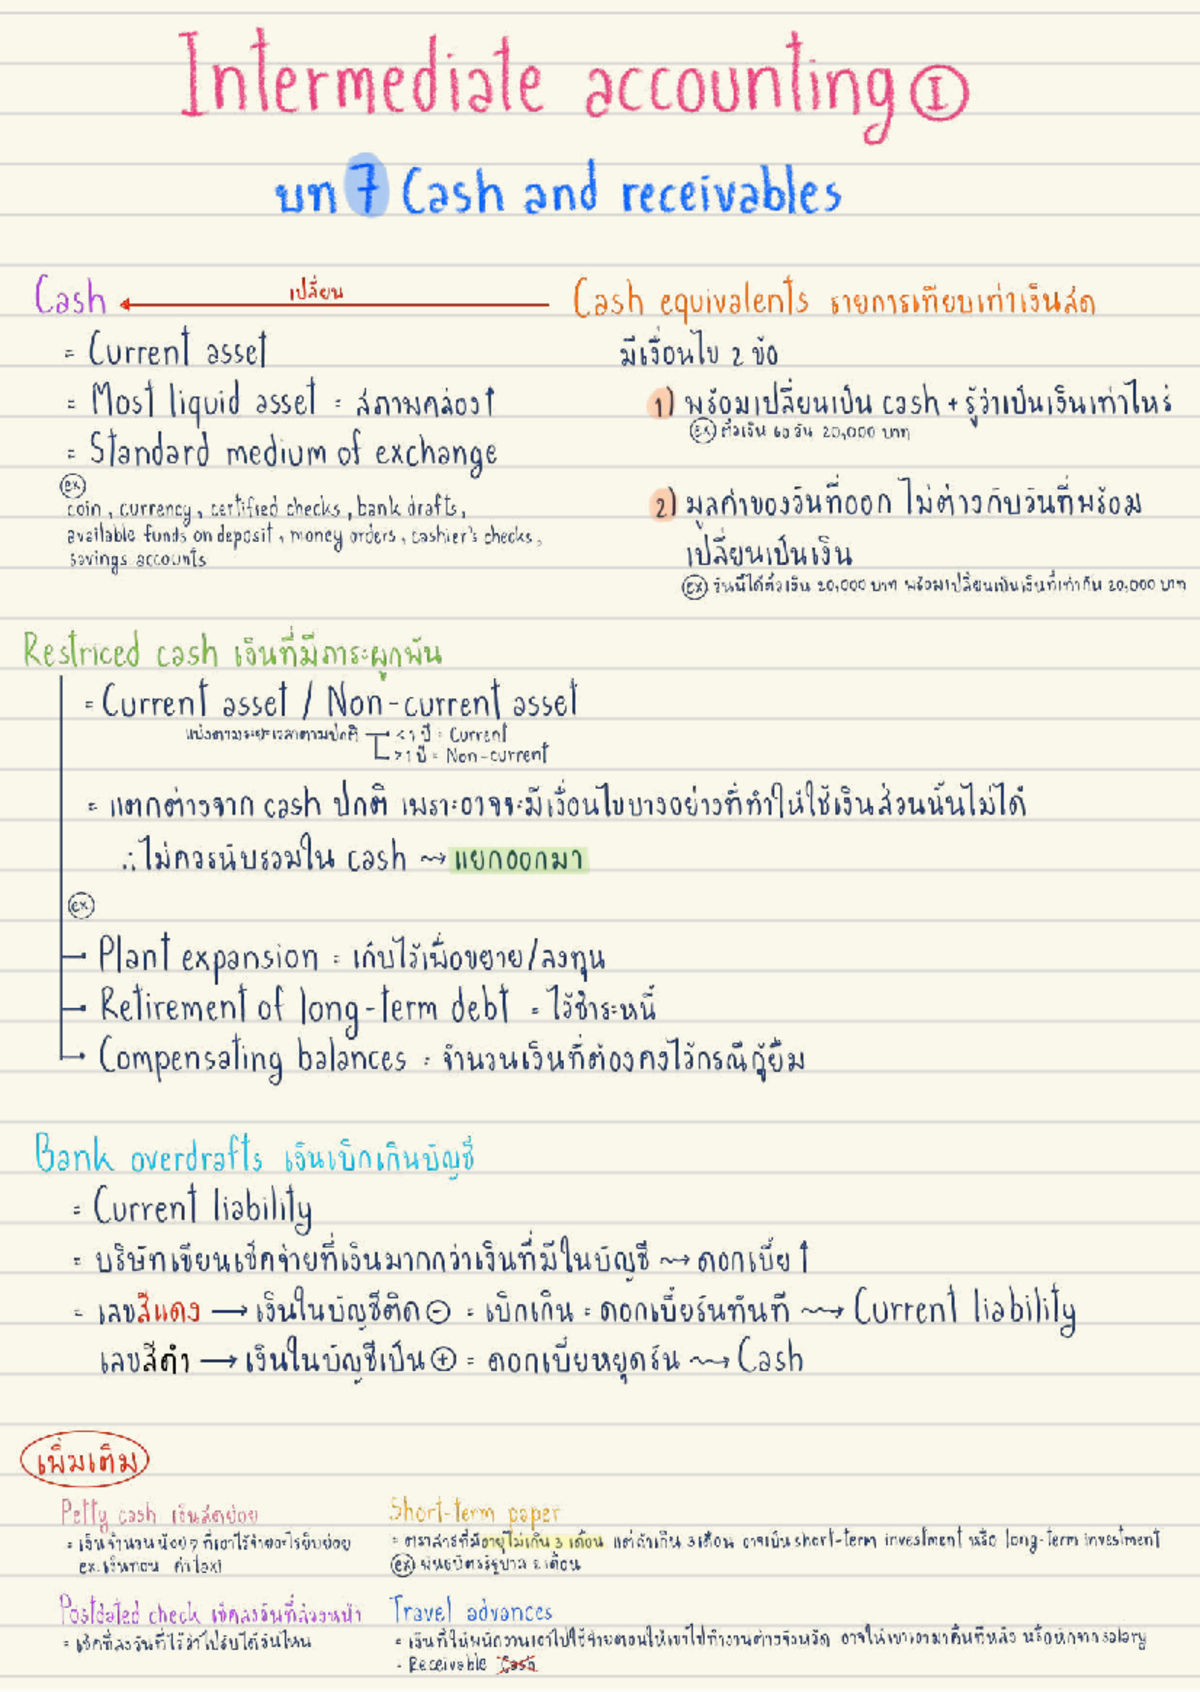 Intermediate accounting I
บท 7 Cash and receivables
Cash ← เปลี่ยน
= Current asset
= Most liquid asset = สภาพคล่อง↑
= Standard medium of exchange
ex
coin, currency, certified checks, bank drafts,
available funds on deposit, money orders, cashier's checks,
savings accounts
Cash equivalents รายการเทียบเท่าเงินสด
มีเงื่อนไข 2 ข้อ
1) พร้อมเปลี่ยนเป็น cash + รู้ว่าเป็นเงินเท่าไหร่
ex ตั๋วเงิน 60 วัน 20,000 บาท
2) มูลค่าของวันที่ออก ไม่ต่างกับวันที่พร้อม
เปลี่ยนเป็นเงิน
ex วันนี้ได้ตั๋วเงิน 20,000 บาท พร้อมเปลี่ยนเป็นเงินที่เท่ากัน 20,000 บาท
Restriced cash เงินที่มีภาระผูกพัน
= Current asset / Non-current asset
แบ่งตามระยะเวลาตามปกติ <1 ปี = Current
>1 ปี = Non-current
= แตกต่างจาก cash ปกติ เพราะอาจจะมีเงื่อนไขบางอย่างที่ทำให้ใช้เงินส่วนนั้นไม่ได้
∴ ไม่ควรนับรวมใน cash ⇝ แยกออกมา
ex
Plant expansion = เก็บไว้เพื่อขยาย/ลงทุน
Retirement of long-term debt = ไว้ชำระหนี้
Compensating balances = จำนวนเงินที่ต้องคงไว้กรณีกู้ยืม
Bank overdrafts เงินเบิกเกินบัญชี
= Current liability
= บริษัทเขียนเช็คจ่ายที่เงินมากกว่าเงินที่มีในบัญชี ⇝ ดอกเบี้ย↑
= เลขสีแดง → เงินในบัญชีติด ⊖ = เบิกเกิน = ดอกเบี้ยรันทันที ⇝ Current liability
เลขสีดำ → เงินในบัญชีเป็น ⊕ = ดอกเบี้ยหยุดรัน ⇝ Cash
เพิ่มเติม
Petty cash เงินสดย่อย
= เงินจำนวนน้อยๆ ที่เอาไว้จ่ายอะไรยิบย่อย
ex. เงินทอน ค่าTaxi
Short-term paper
= ตราสารที่มีอายุไม่เกิน 3 เดือน แต่ถ้าเกิน 3 เดือน อาจเป็น short-term investment หรือ long-term investment
ex พันธบัตรรัฐบาล 2 เดือน
Postdated check เช็คลงวันที่ล่วงหน้า
= เช็คที่ลงวันที่ไว้ว่าไปรับได้วันไหน
Travel advances
= เงินที่ให้พนักงานเอาไปใช้จ่ายตอนให้เขาไปทำงานต่างจังหวัด อาจให้เขาเอามาคืนทีหลัง หรือหักจาก salary
- Receivable Cash